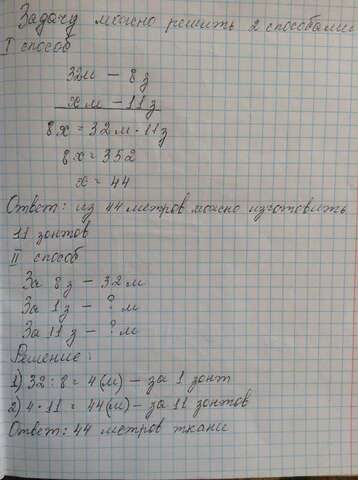 Задачу можно решить 2 способами
I способ
32м – 8з
х м – 11з
8х = 32м · 11з
8х = 352
х = 44
Ответ: из 44 метров можно изготовить
11 зонтов
II способ
За 8з – 32м
За 1з – ? м
За 11з – ? м
Решение:
1) 32 : 8 = 4(м) – за 1 зонт
2) 4 · 11 = 44(м) – за 11 зонтов
Ответ: 44 метров ткани